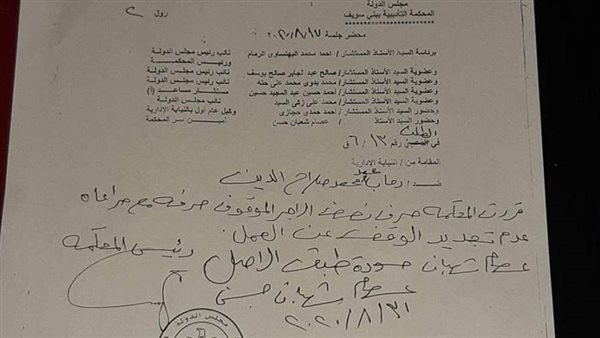 مجلس الدولة
المحكمة التأديبية ببني سويف
رول ٢
محضر جلسة ٢٠٢٠/٨/١٧
برئاسة السيد الأستاذ المستشار/ احمد محمد البهنساوى الرمام نائب رئيس مجلس الدولة
ورئيس المحكمة
وعضوية السيد الأستاذ المستشار/ صالح عبد الجابر صالح يوسف نائب رئيس مجلس الدولة
وعضوية السيد الأستاذ المستشار/ محمد بدوى محمد على حته نائب رئيس مجلس الدولة
وعضوية السيد الأستاذ المستشار/ أحمد حسين عبد المجيد حسين مستشار مساعد (أ)
وعضوية السيد الأستاذ المستشار/ محمد على زكى السيد نائب مجلس الدولة
وحضور السيد الأستاذ المستشار/ أحمد حمدى حجازى وكيل عام أول بالنيابة الإدارية
وحضور السيد الأستاذ / عصام شعبان حسن أمين سر المحكمة
الطلب
في رقم ١٣ / ٦ ق
المقامة من / النيابة الإدارية
ضد / رحاب محمد صلاح الدين
قررت المحكمة صرف نصف الأجر الموقوف صرفه مع مراعاة
عدم تجديد الوقف عن العمل
عصام شعبان صورة طبق الأصل رئيس المحكمة
عصام شعبان حسن
٢٠٢٠/٨/٣١
مجلس الدولة